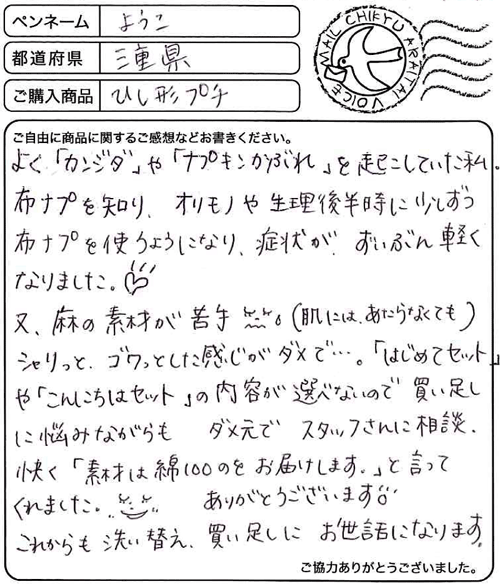 ペンネーム ようこ
都道府県 三重県
ご購入商品 ひし形プチ
MAIL CHIKYU ARAITAI VOICE
ご自由に商品に関するご感想などお書きください。
よく「カンジダ」や「ナプキンかぶれ」を起こしていた私。
布ナプを知り、オリモノや生理後半時に少しずつ
布ナプを使うようになり、症状が、ずいぶん軽く
なりました。
又、麻の素材が苦手 (肌には、あたらなくても)
シャリっと、ゴワっとした感じがダメで…。「はじめてセット」
や「こんにちはセット」の内容が選べないので買い足し
に悩みながらも ダメ元で スタッフさんに相談、
快く「素材は綿100のをお届けします。」と言って
くれました。 ありがとうございます
これからも洗い替え、買い足しに お世話になります。
ご協力ありがとうございました。